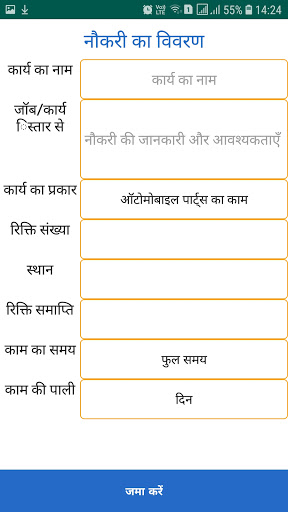 Vo) LTE 55% 14:24
नौकरी का विवरण
कार्य का नाम
कार्य का नाम
जॉब/कार्य
िस्तार से
नौकरी की जानकारी और आवश्यकताएँ
कार्य का प्रकार
ऑटोमोबाइल पार्ट्स का काम
रिक्ति संख्या
स्थान
रिक्ति समाप्ति
काम का समय
फुल समय
काम की पाली
दिन
जमा करें